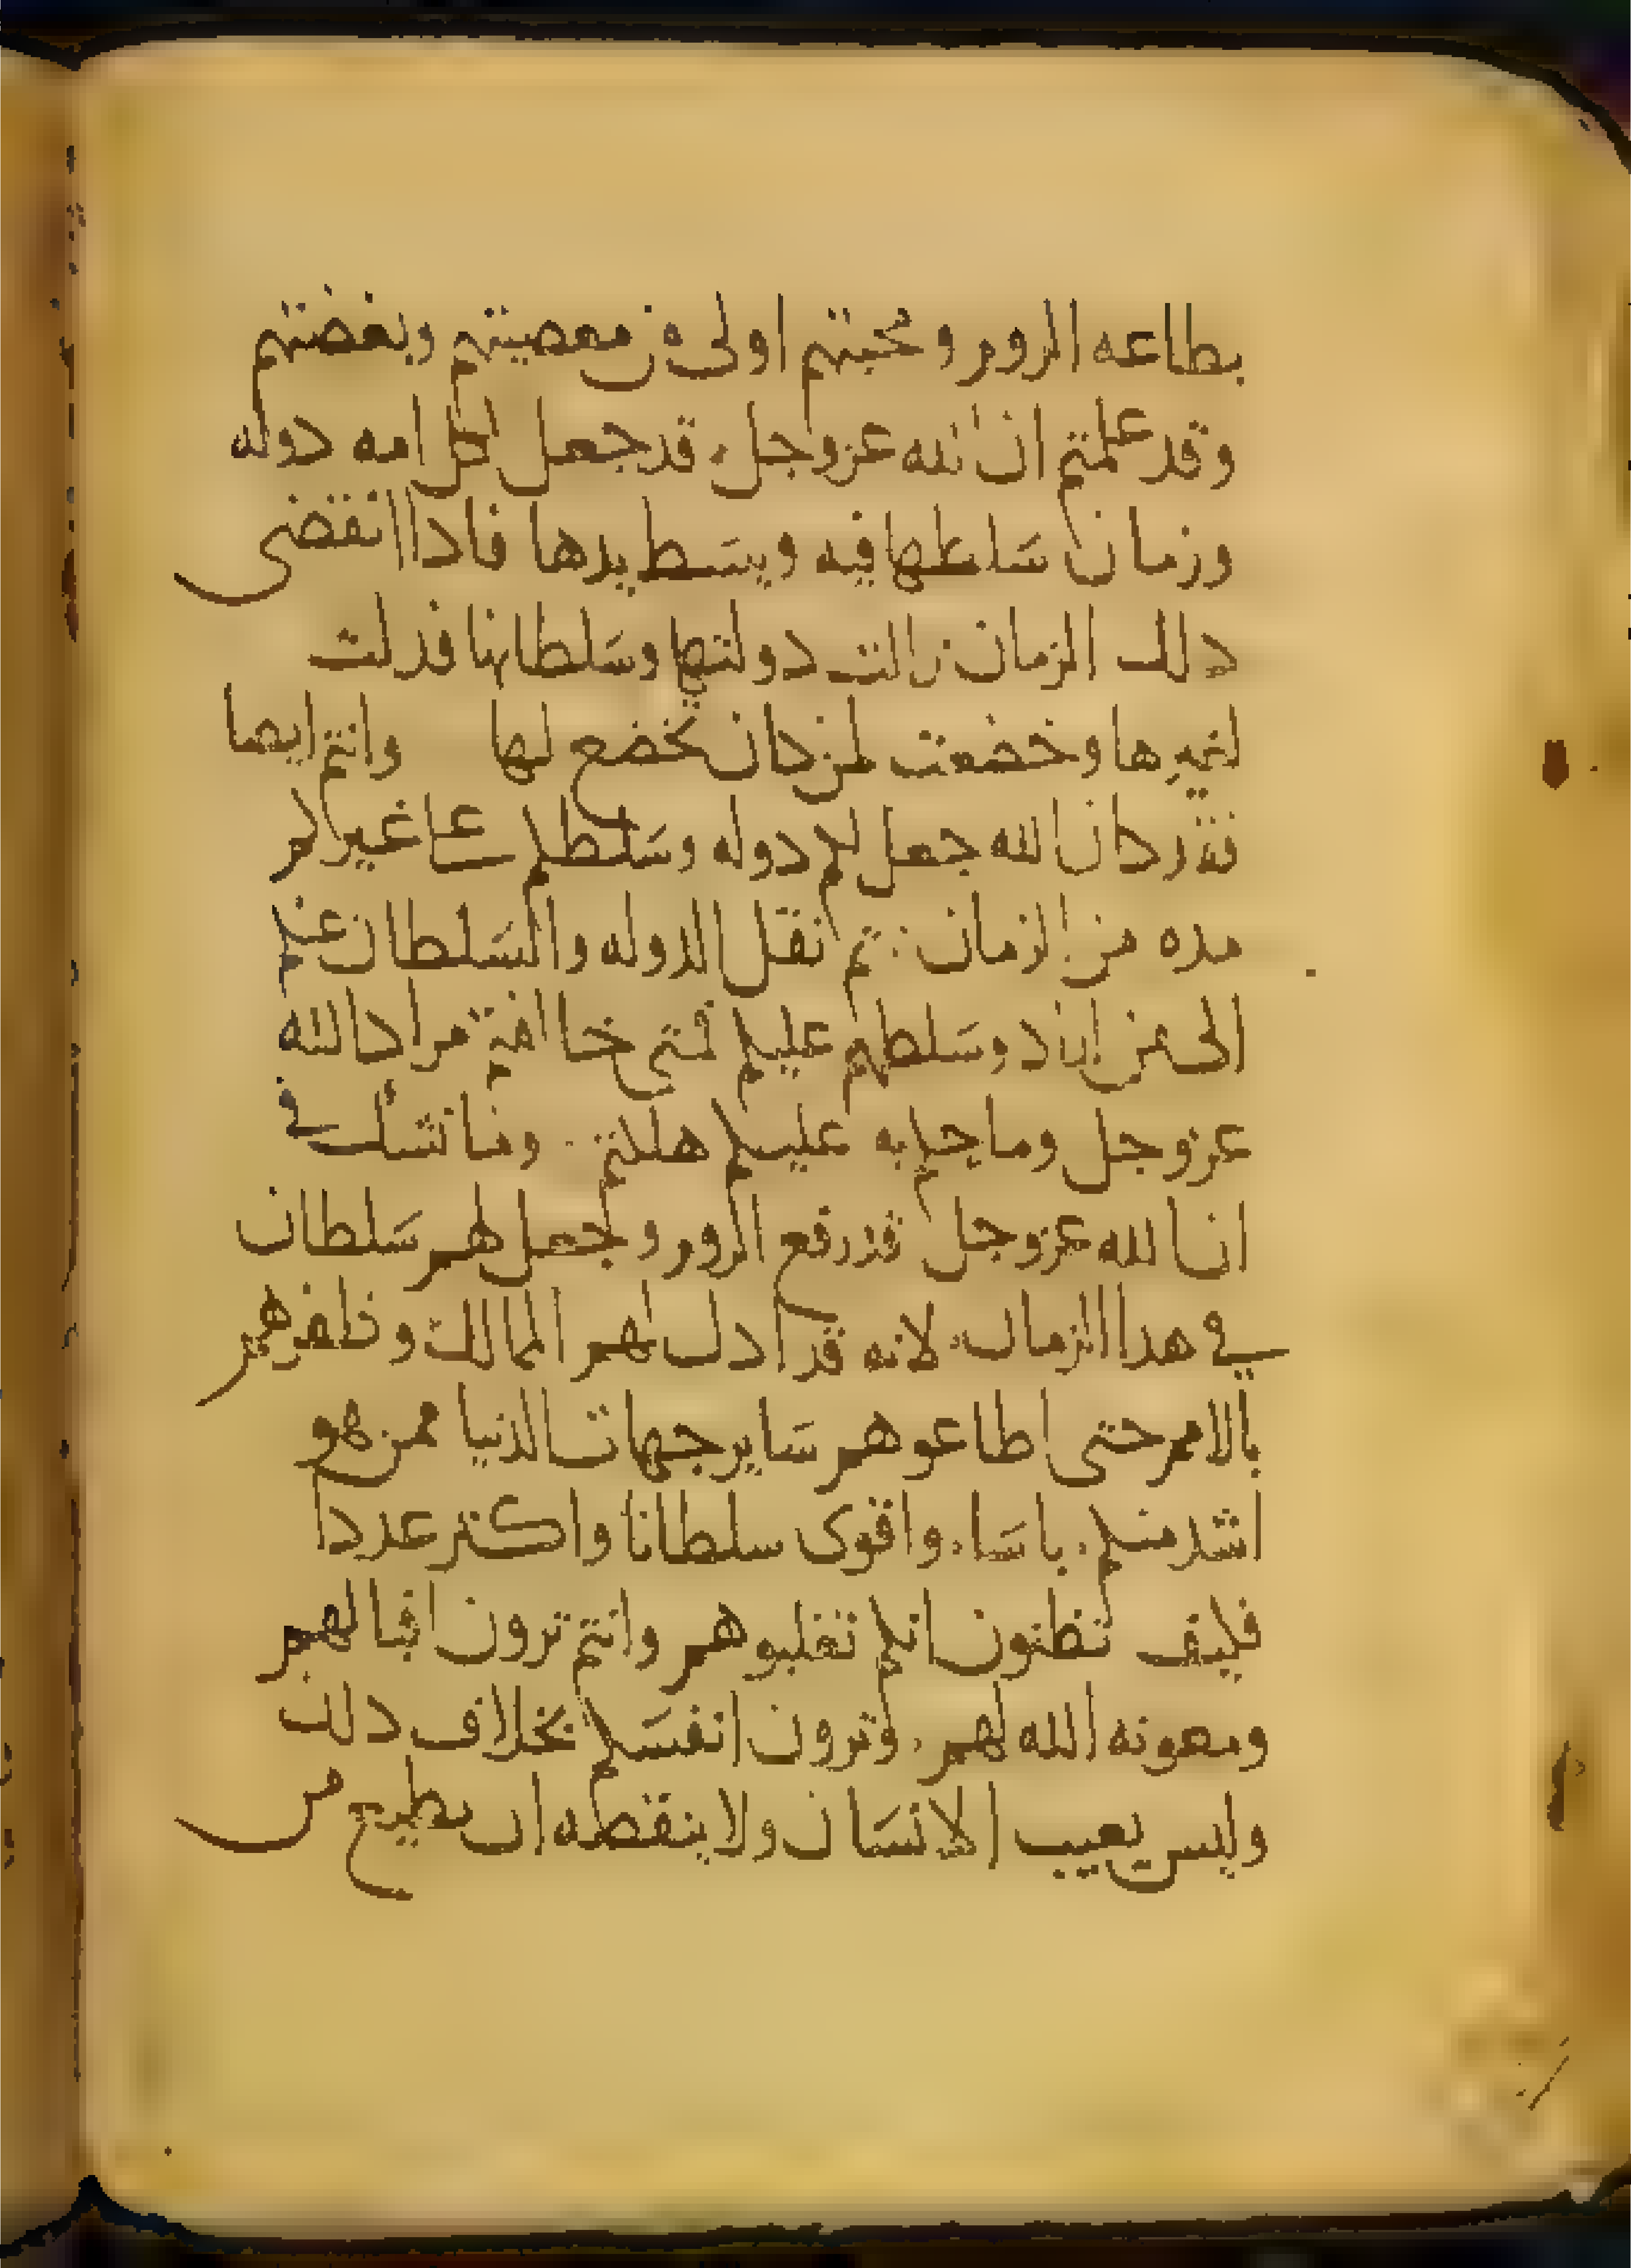 بطاعه الروم ومحبتهم اولى من معصيتهم وبغضتهم
وقد علمتم ان الله عز وجل قد جعل لكل امه دوله
وزمان سَلطها فيه وبسَط يدها فادا انقضى
دلك الزمان زالت دولتها وسَلطانها فدلت
لغيرها وخضعت لمن كان يخضع لها وانتم ايها
فقد كان الله جعل لكم دوله وسَلطكم على غيركم
مده من الزمان ثم نقل الدوله والسَلطان عنكم
الى من اراد وسَلطهم عليكم فمتى خالفتم مراد الله
عز وجل وما حكم به عليكم هلكتم وما نشك في
ان الله عز وجل قد رفع الروم وجعل لهم سَلطان
في هدا الزمان لانه قد ادل لهم الممالك وظفرهم
بالامم حتى اطاعوهم سَاير جهات الدنيا ممن هو
اشد منكم باسَا واقوى سلطانا واكثر عددا
فكيف تظنون انكم تغلبوهم وانتم ترون اقبالهم
ومعونه الله لهم وترون انفسَكم بخلاف دلك
وليس يعيب الانسَان ولا ينقصه ان يطيع من